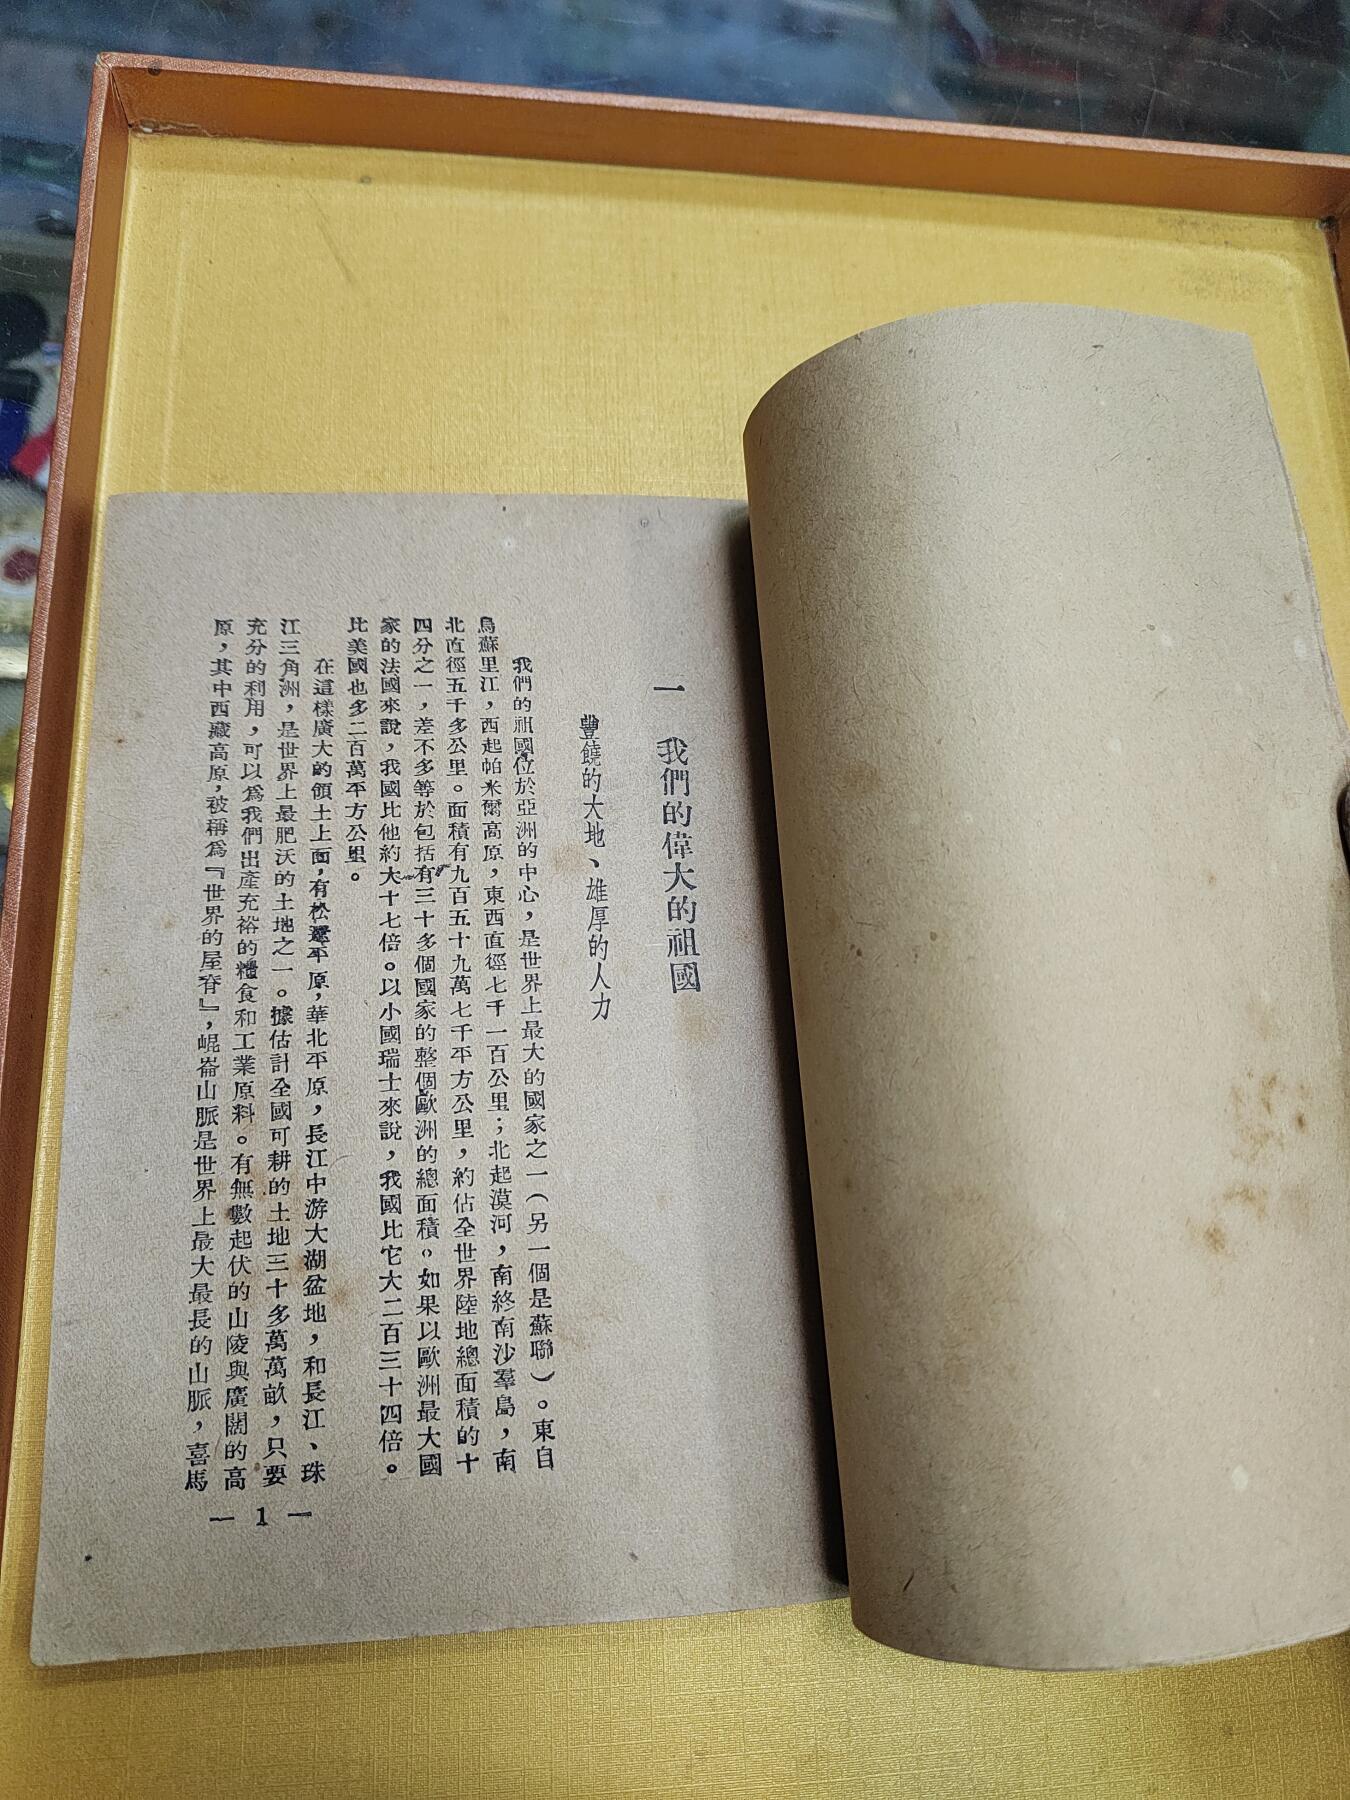 一　我們的偉大的祖國
豐饒的大地、雄厚的人力
我們的祖國位於亞洲的中心，是世界上最大的國家之一（另一個是蘇聯）。東自
烏蘇里江，西起帕米爾高原，東西直徑七千一百公里；北起漠河，南終南沙羣島，南
北直徑五千多公里。面積有九百五十九萬七千平方公里，約佔全世界陸地總面積的十
四分之一，差不多等於包括有三十多個國家的整個歐洲的總面積。如果以歐洲最大國
家的法國來說，我國比他約大十七倍。以小國瑞士來說，我國比它大二百三十四倍。
比美國也多二百萬平方公里。
在這樣廣大的領土上面，有松遼平原，華北平原，長江中游大湖盆地，和長江、珠
江三角洲，是世界上最肥沃的土地之一。據估計全國可耕的土地三十多萬萬畝，只要
充分的利用，可以爲我們出產充裕的糧食和工業原料。有無數起伏的山陵與廣闊的高
原，其中西藏高原，被稱爲『世界的屋脊』，崐崙山脈是世界上最大最長的山脈，喜馬
— 1 —